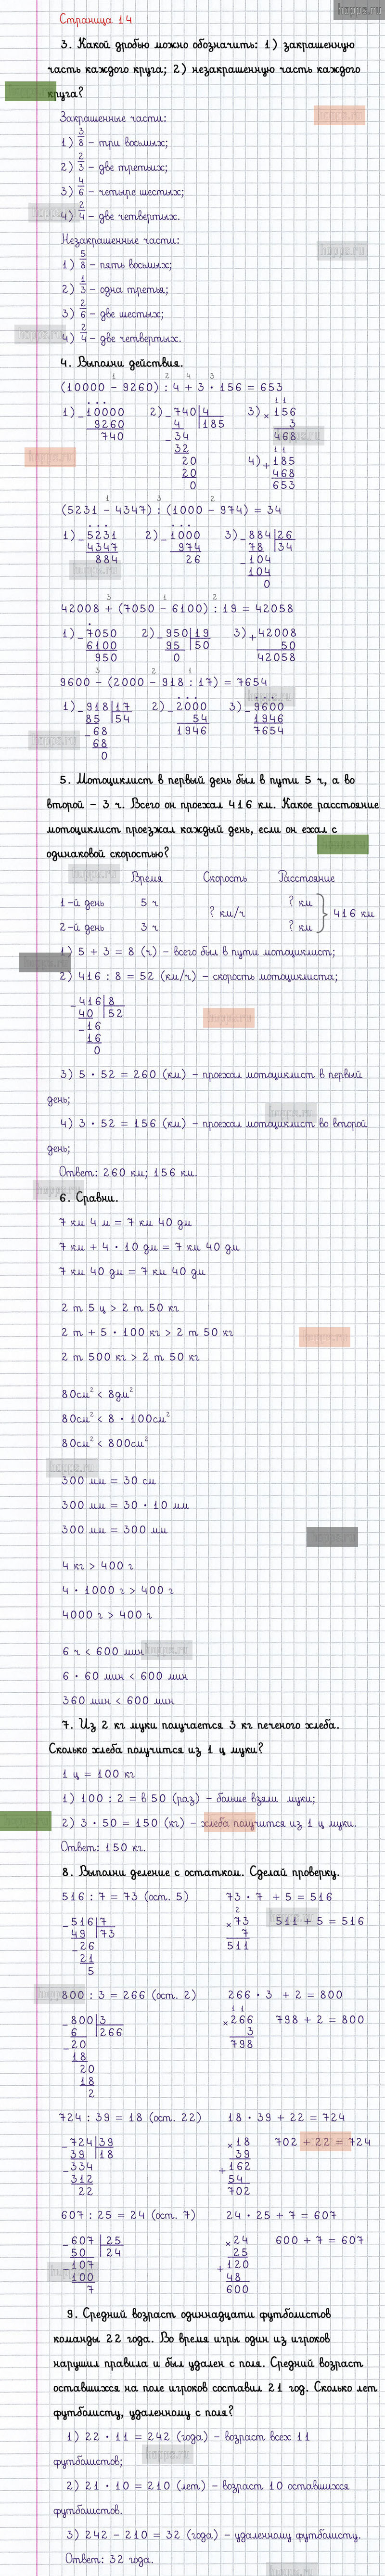 Страница 14
3. Какой дробью можно обозначить: 1) закрашенную
часть каждого круга; 2) незакрашенную часть каждого
круга?
Закрашенные части:
1) 3/8 – три восьмых;
2) 2/3 – две третьих;
3) 4/6 – четыре шестых;
4) 2/4 – две четвертых.
Незакрашенные части:
1) 5/8 – пять восьмых;
2) 1/3 – одна третья;
3) 2/6 – две шестых;
4) 2/4 – две четвертых.
4. Выполни действия.
1 2 4 3
(10000 – 9260) : 4 + 3 · 156 = 653
1) – 10000 2) – 740 | 4 3) × 156
9260 4 185 3
740 – 34 468
32
20 4) + 185
20 468
0 653
1 3 2
(5231 – 4347) : (1000 – 974) = 34
1) – 5231 2) – 1000 3) – 884 | 26
4347 974 78 34
884 26 – 104
104
0
3 1 2
42008 + (7050 – 6100) : 19 = 42058
1) – 7050 2) – 950 | 19 3) + 42008
6100 95 50 50
950 0 42058
3 2 1
9600 – (2000 – 918 : 17) = 7654
1) – 918 | 17 2) – 2000 3) – 9600
85 54 54 1946
– 68 1946 7654
68
0
5. Мотоциклист в первый день был в пути 5 ч, а во
второй – 3 ч. Всего он проехал 416 км. Какое расстояние
мотоциклист проезжал каждый день, если он ехал с
одинаковой скоростью?
Время Скорость Расстояние
1-й день 5 ч ? км
? км/ч 416 км
2-й день 3 ч ? км
1) 5 + 3 = 8 (ч) – всего был в пути мотоциклист;
2) 416 : 8 = 52 (км/ч) – скорость мотоциклиста;
– 416 | 8
40 52
– 16
16
0
3) 5 · 52 = 260 (км) – проехал мотоциклист в первый
день;
4) 3 · 52 = 156 (км) – проехал мотоциклист во второй
день;
Ответ: 260 км; 156 км.
6. Сравни.
7 км 4 м = 7 км 40 дм
7 км + 4 · 10 дм = 7 км 40 дм
7 км 40 дм = 7 км 40 дм
2 т 5 ц > 2 т 50 кг
2 т + 5 · 100 кг > 2 т 50 кг
2 т 500 кг > 2 т 50 кг
80см² < 8дм²
80см² < 8 · 100см²
80см² < 800см²
300 мм = 30 см
300 мм = 30 · 10 мм
300 мм = 300 мм
4 кг > 400 г
4 · 1000 г > 400 г
4000 г > 400 г
6 ч < 600 мин
6 · 60 мин < 600 мин
360 мин < 600 мин
7. Из 2 кг муки получается 3 кг печеного хлеба.
Сколько хлеба получится из 1 ц муки?
1 ц = 100 кг
1) 100 : 2 = в 50 (раз) – больше взяли муки;
2) 3 · 50 = 150 (кг) – хлеба получится из 1 ц муки.
Ответ: 150 кг.
8. Выполни деление с остатком. Сделай проверку.
516 : 7 = 73 (ост. 5) 73 · 7 + 5 = 516
– 516 | 7 × 73 511 + 5 = 516
49 73 7
– 26 511
21
5
800 : 3 = 266 (ост. 2) 266 · 3 + 2 = 800
– 800 | 3 × 266 798 + 2 = 800
6 266 3
– 20 798
18
20
18
2
724 : 39 = 18 (ост. 22) 18 · 39 + 22 = 724
– 724 | 39 × 18 702 + 22 = 724
39 18 39
– 334 + 162
312 54
22 702
607 : 25 = 24 (ост. 7) 24 · 25 + 7 = 607
– 607 | 25 × 24 600 + 7 = 607
50 24 25
– 107 + 120
100 48
7 600
9. Средний возраст одиннадцати футболистов
команды 22 года. Во время игры один из игроков
нарушил правила и был удален с поля. Средний возраст
оставшихся на поле игроков составил 21 год. Сколько лет
футболисту, удаленному с поля?
1) 22 · 11 = 242 (года) – возраст всех 11
футболистов;
2) 21 · 10 = 210 (лет) – возраст 10 оставшихся
футболистов.
3) 242 – 210 = 32 (года) – удаленному футболисту.
Ответ: 32 года.